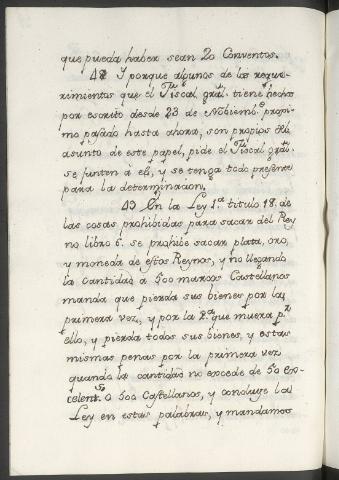 que pueda haber sean 20 Conventos.
42 Y porque algunos de los reque-
rimientos que el Fiscal gral. tiene hechos
por escrito desde 23 de Nobiemb.e proxi-
mo pasado hasta ahora, son propios del
asunto de este papel, pide el Fiscal gral.
se junten à èl, y se tenga todo presente
para la determinacion.
43 En la Ley 1.a titulo 18. de
las cosas prohibidas para sacar del Rey
no libro 6. se prohibe sacar plata, oro,
y moneda de estos Reynos, y no llegando
la cantidad à 500 marcos Castellanos
manda que pierda sus bienes por la
primera vez, y por la 2.a que muera p.r
ello, y pierda todos sus bienes, y estas
mismas penas por la primera vez
quando la cantidad no excede de 50 Ex-
celent.s o 500 Castellanos, y concluye la
Ley en estas palabras, y mandamos